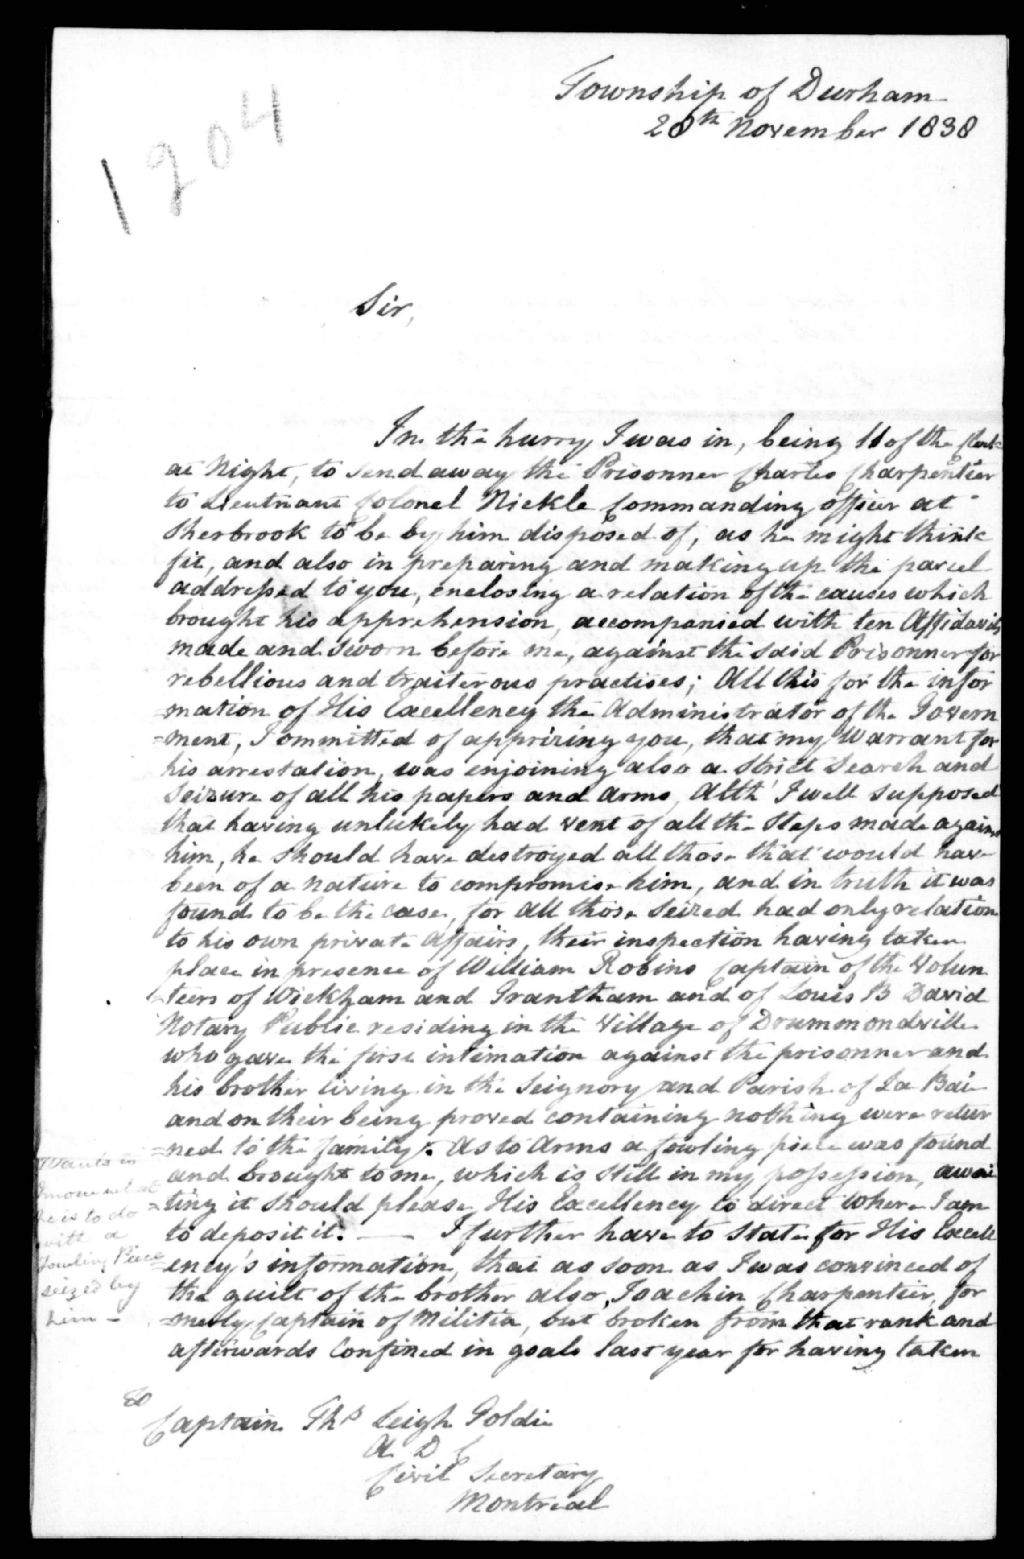 1204
Township of Durham
28th November 1838
Sir,
In the hurry I was in, being 11 of the
at Night, to send away the Prisonner Charles Charpentier
to Lieutnant Colonel Nickle Commanding officer at
Sherbrook to be by him disposed of, as he might think
fit, and also in preparing and making up the parcel
addressed to you, enclosing a relation of the causes which
brought his apprehension, accompanied with ten Affidavits
made and sworn before me, against the said Prisonner for
rebellious and traiterous practises; All this for the infor
=mation of His Excellency the Administrator of the Govern
=ment, I ommitted of apprizing you, that my Warrant for
his arrestation, was enjoining also a strict Search and
Seizure of all his papers and arms, Alth' I well supposed
that having unlukely had vent of all the steps made against
him, he should have destroyed all those that would have
been of a nature to compromise him, and in truth it was
found to be the case, for all those seized had only relation
to his own private affairs, their inspection having taken
place in presence of William Robins Captain of the Volun
=teers of Wickham and Grantham and of Louis B David
Notary Public residing in the Village of Drummondville
who gave the first intimation against the prisonner and
his brother living in the Seignory and Parish of La Bai
and on their being proved containing nothing were retur
=ned to the family. As to Arms a fowling piece was found
and brought to me, which is still in my possession, awai
=ting it should please, His Excellency to direct where I am
to deposit it. — I further have to state for His Excell
=ency's information, that as soon as I was convinced of
the guilt of the brother also, Joachin Charpentier, for
=merly Captain of Militia, but broken from that rank and
afterwards Confined in goals last year for having taken
Wants to
know what
he is to do
with a
Fowling Piece
seized by
him —
To
Captain Ths Leigh Goldie
A D C
Civil Secretary
Montreal